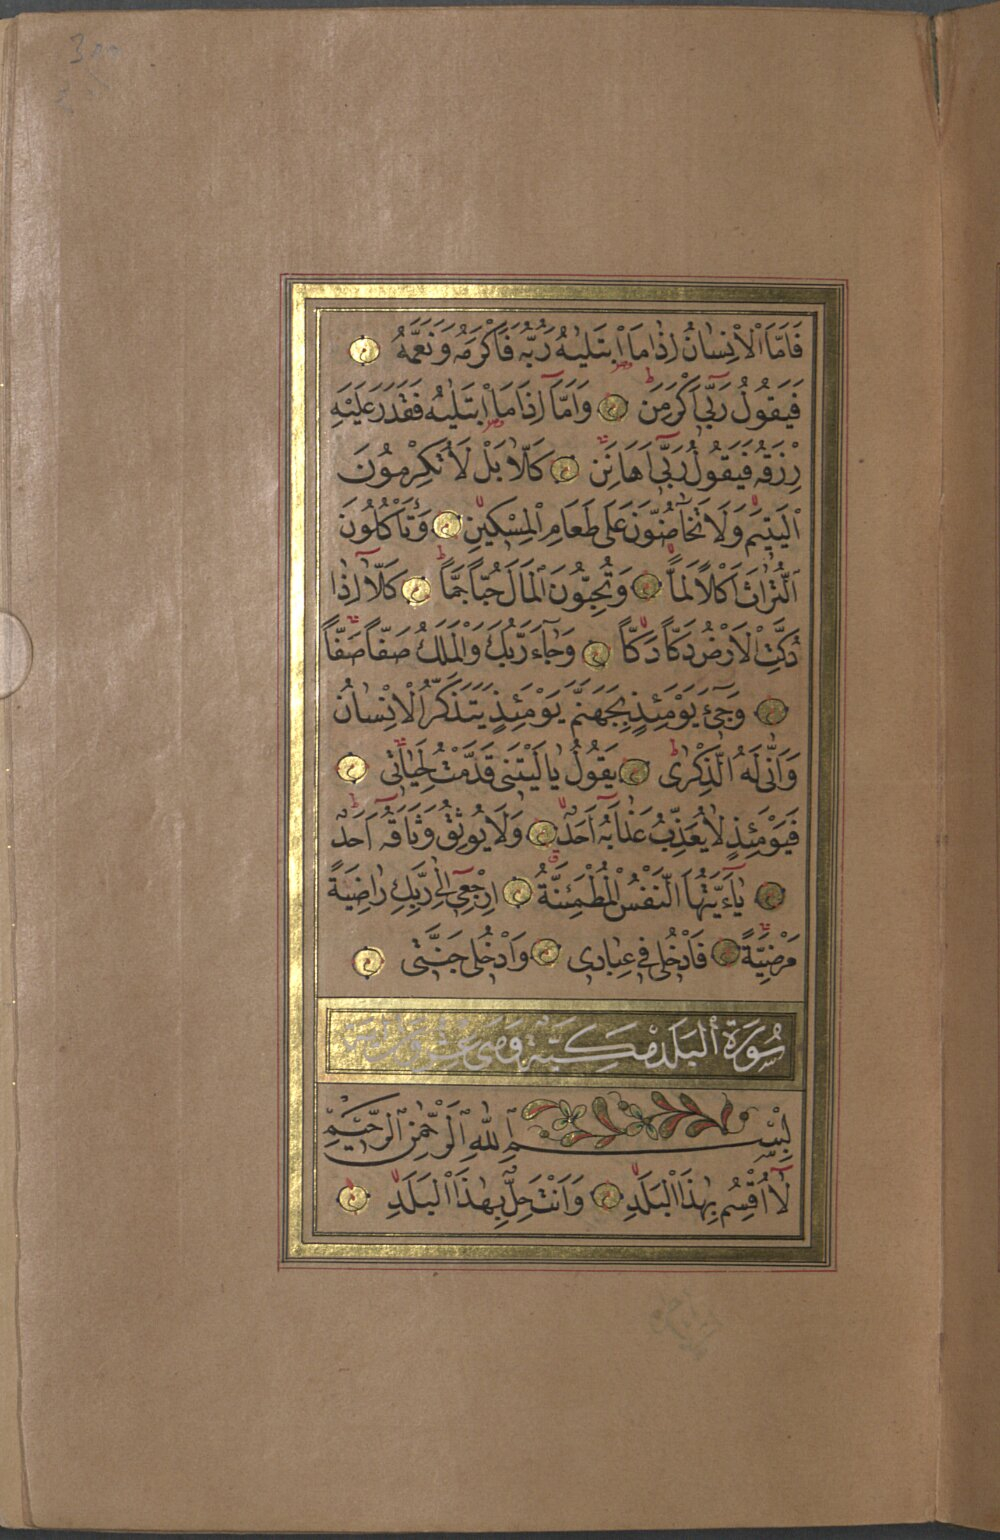 فَاَمَّا الْاِنْسَانُ اِذَا مَا ابْتَلٰيهُ رَبُّهُ فَاَكْرَمَهُ وَنَعَّمَهُ
فَيَقُولُ رَبّٖٓى اَكْرَمَنِ وَاَمَّٓا اِذَا مَا ابْتَلٰيهُ فَقَدَرَ عَلَيْهِ
رِزْقَهُ فَيَقُولُ رَبّٖٓى اَهَانَنِ كَلَّا بَلْ لَا تُكْرِمُونَ
الْيَتٖيمَ وَلَا تَحَٓاضُّونَ عَلٰى طَعَامِ الْمِسْكٖينِ وَتَاْكُلُونَ
التُّرَاثَ اَكْلًا لَمًّا وَتُحِبُّونَ الْمَالَ حُبًّا جَمًّا كَلَّٓا اِذَا
دُكَّتِ الْاَرْضُ دَكًّا دَكًّا وَجَٓاءَ رَبُّكَ وَالْمَلَكُ صَفًّا صَفًّا
وَجٖٓئَ يَوْمَئِذٍ بِجَهَنَّمَ يَوْمَئِذٍ يَتَذَكَّرُ الْاِنْسَانُ
وَاَنّٰى لَهُ الذِّكْرٰى يَقُولُ يَا لَيْتَنٖى قَدَّمْتُ لِحَيَاتٖى
فَيَوْمَئِذٍ لَا يُعَذِّبُ عَذَابَهُٓ اَحَدٌ وَلَا يُوثِقُ وَثَاقَهُٓ اَحَدٌ
يَٓا اَيَّتُهَا النَّفْسُ الْمُطْمَئِنَّةُ اِرْجِعٖٓى اِلٰى رَبِّكِ رَاضِيَةً
مَرْضِيَّةً فَادْخُلٖى فٖى عِبَادٖى وَادْخُلٖى جَنَّتٖى
سُورَةُ الْبَلَدِ مَكِّيَّةٌ وَهِىَ
بِسْمِ اللّٰهِ الرَّحْمٰنِ الرَّحٖيمِ
لَٓا اُقْسِمُ بِهٰذَا الْبَلَدِ وَاَنْتَ حِلٌّ بِهٰذَا الْبَلَدِ